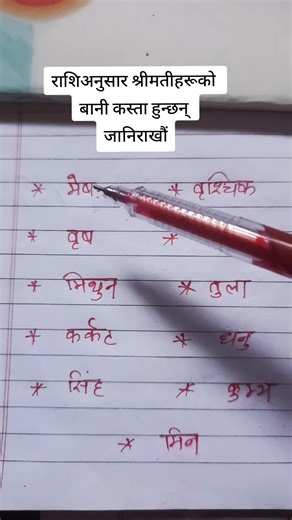 राशिअनुसार श्रीमतीहरूको
बानी कस्ता हुन्छन्
जानिराखौं
* मेष * वृश्चिक
* वृष *
* मिथुन * तुला
* कर्कट * धनु
* सिंह * कुम्भ
* मिन